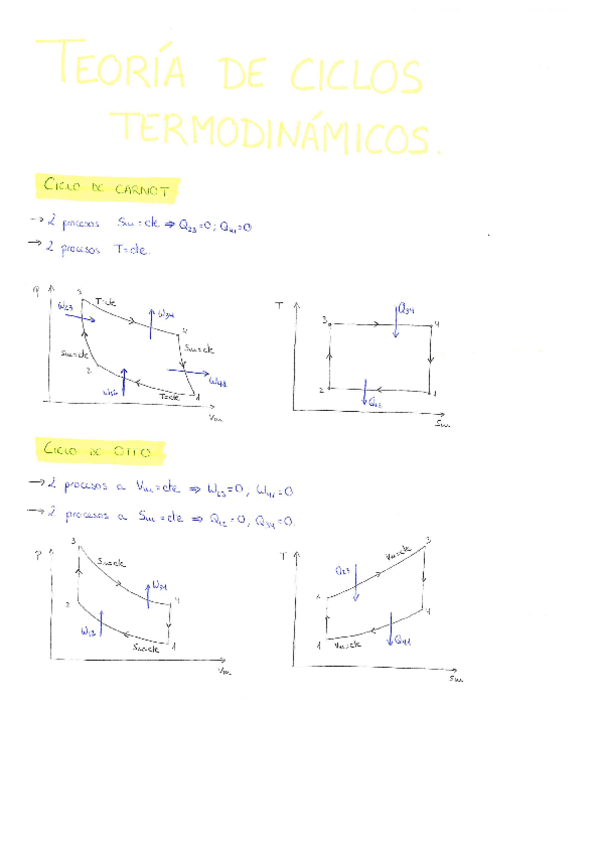 TEORÍA DE CICLOS
TERMODINÁMICOS.
CICLO DE CARNOT
→ 2 procesos Sm = cte ⇒ Q23=0; Q41=0
→ 2 procesos T=cte.
P 3 T=cte W34 4 W23 Sm=cte Sm=cte 2 W41 W12 T=cte 1 Vm
T Q34 3 4 2 1 Q12 Sm
CICLO DE OTTO
→ 2 procesos a Vm = cte ⇒ W23=0, W41=0
→ 2 procesos a Sm = cte ⇒ Q12=0, Q34=0.
P 3 Sm=cte W34 4 2 W12 Sm=cte 1 Vm
T 3 Vm=cte Q23 4 1 Vm=cte Q41 Sm